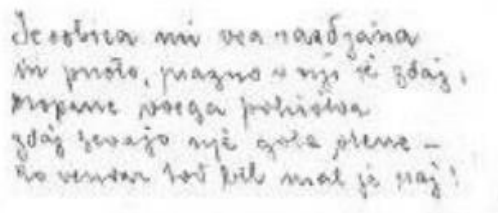 Je sobica mi vsa razdjana
in pusto, prazno v nji je zdaj,
oropane vsega pohištva
zdaj zevajo nje gole stene –
ko vendar tod bil mal je raj!